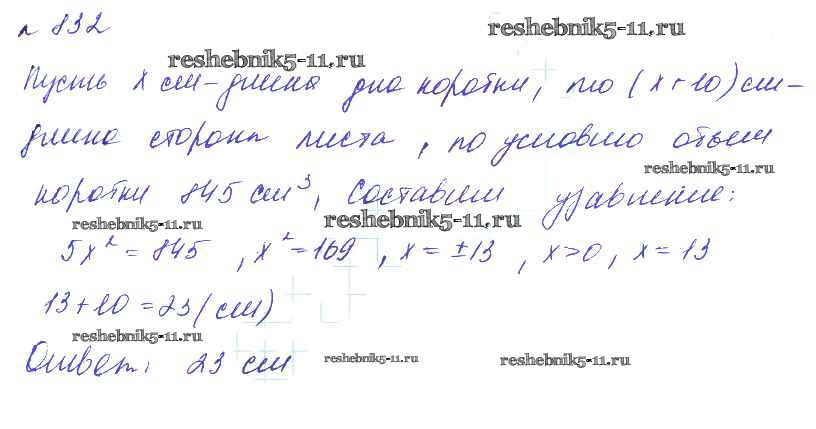 № 832
reshebnik5-11.ru
reshebnik5-11.ru
Пусть x см - длина дна коробки, то (x+10) см -
длина стороны листа, по условию объем
reshebnik5-11.ru
коробки 845 см³, составим уравнение:
reshebnik5-11.ru
reshebnik5-11.ru
5x² = 845, x² = 169, x = ±13, x>0, x = 13
13+10=23 (см)
reshebnik5-11.ru
Ответ: 23 см
reshebnik5-11.ru
reshebnik5-11.ru